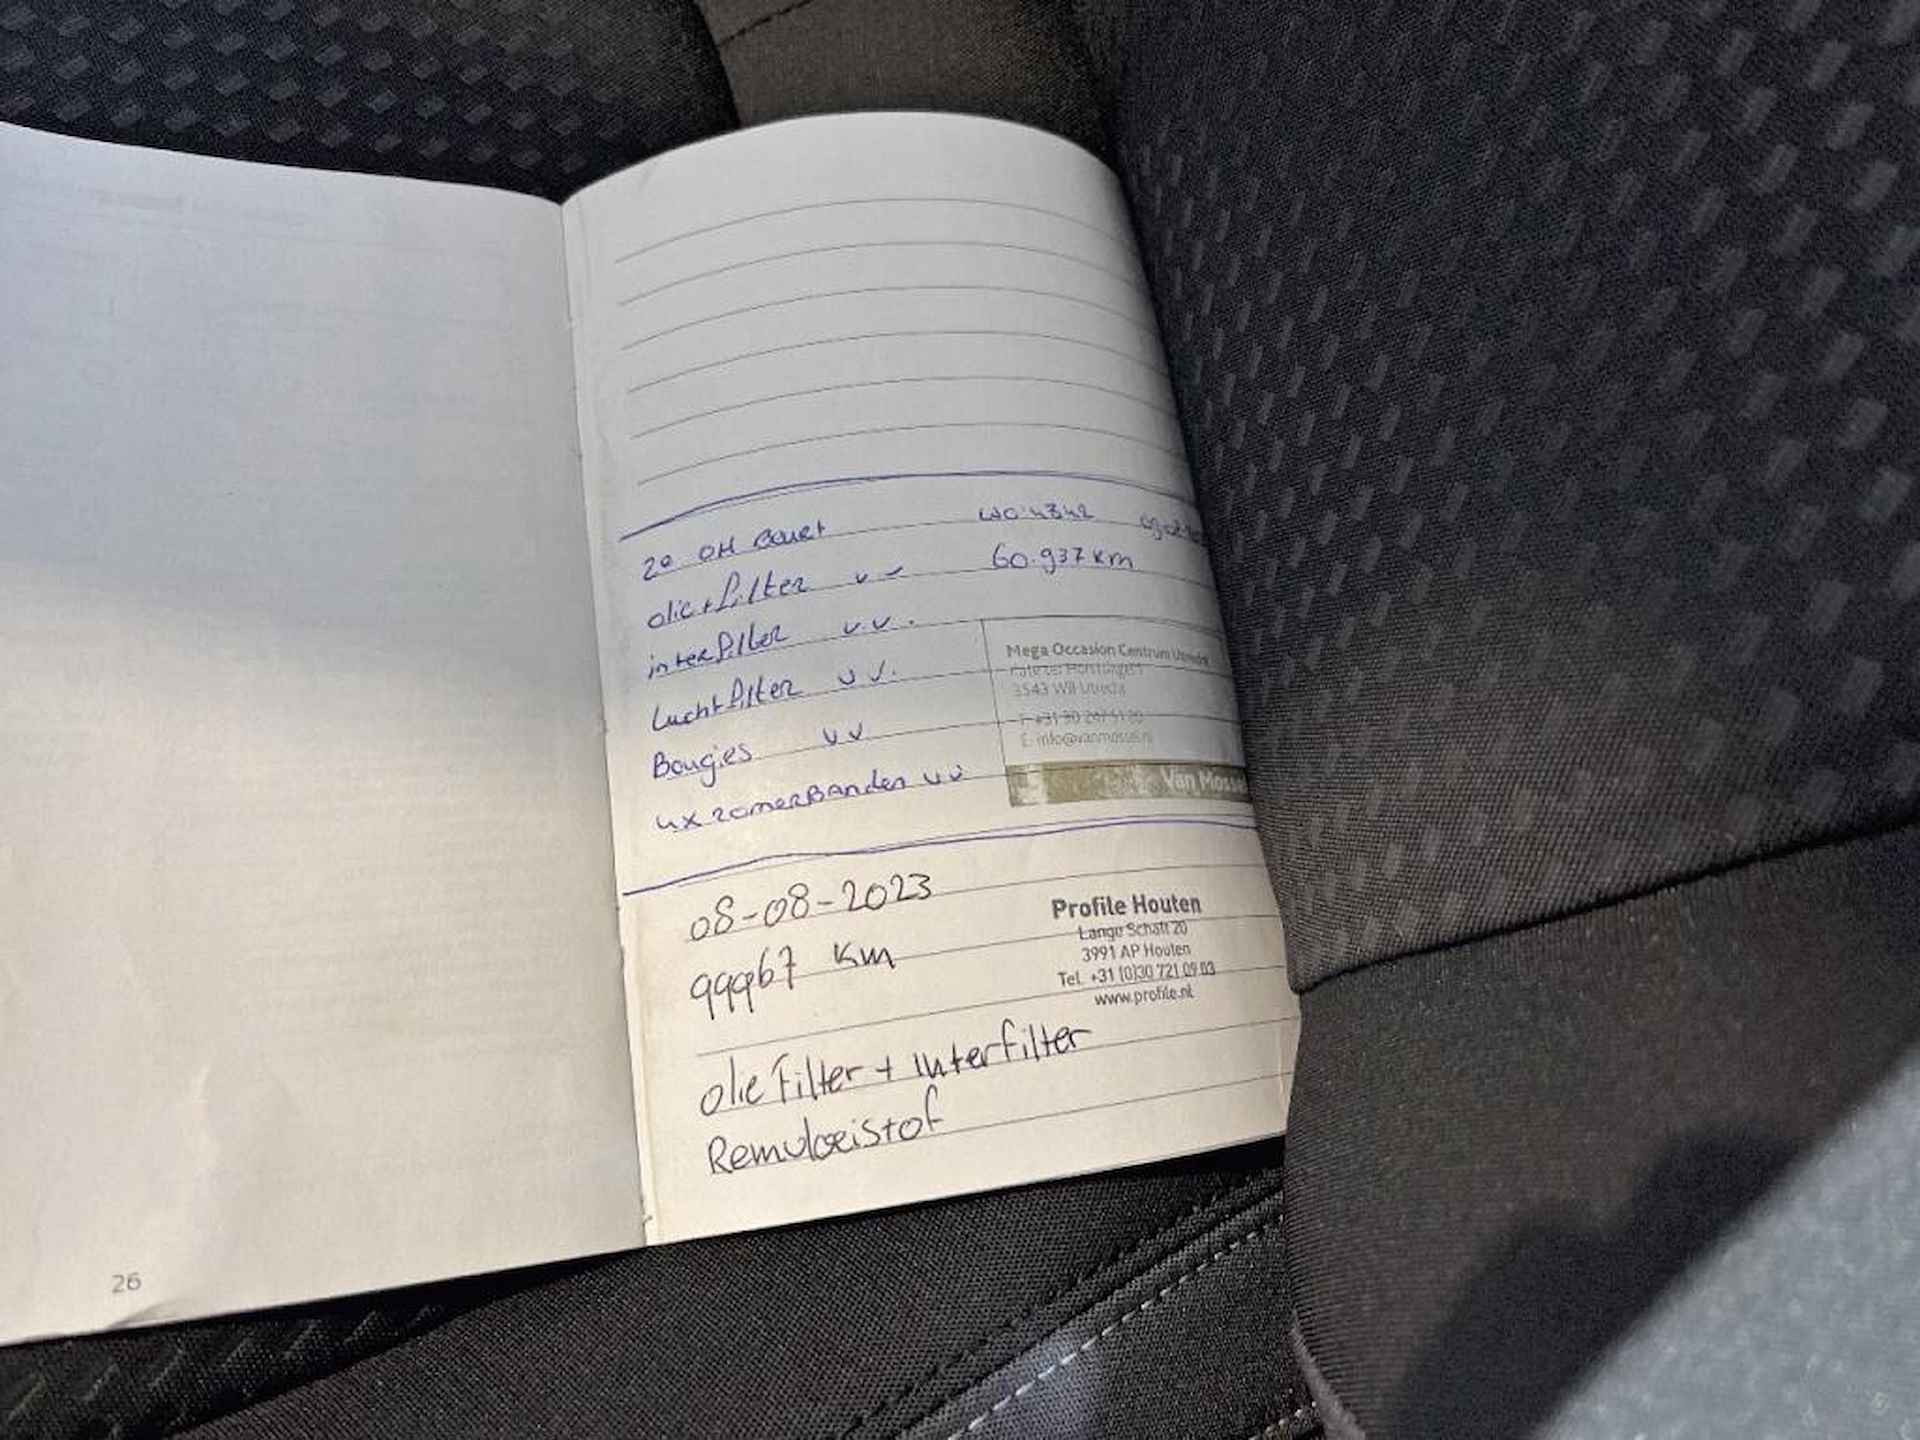 20 OH Beurt WO:4342
olie+filter v v 60.937 km
interfilter v.v.
Luchtfilter v v.
Bougies v v
4x zomerBanden v v
Mega Occasion Centrum Utrecht
3543 Utrecht
E. info@vanmossel.nl
Van Mossel
08-08-2023
99967 Km
Profile Houten
Lange Schaft 20
3991 AP Houten
Tel. +31 (0)30 721 09 03
www.profile.nl
olie Filter + Interfilter
Remvloeistof
26